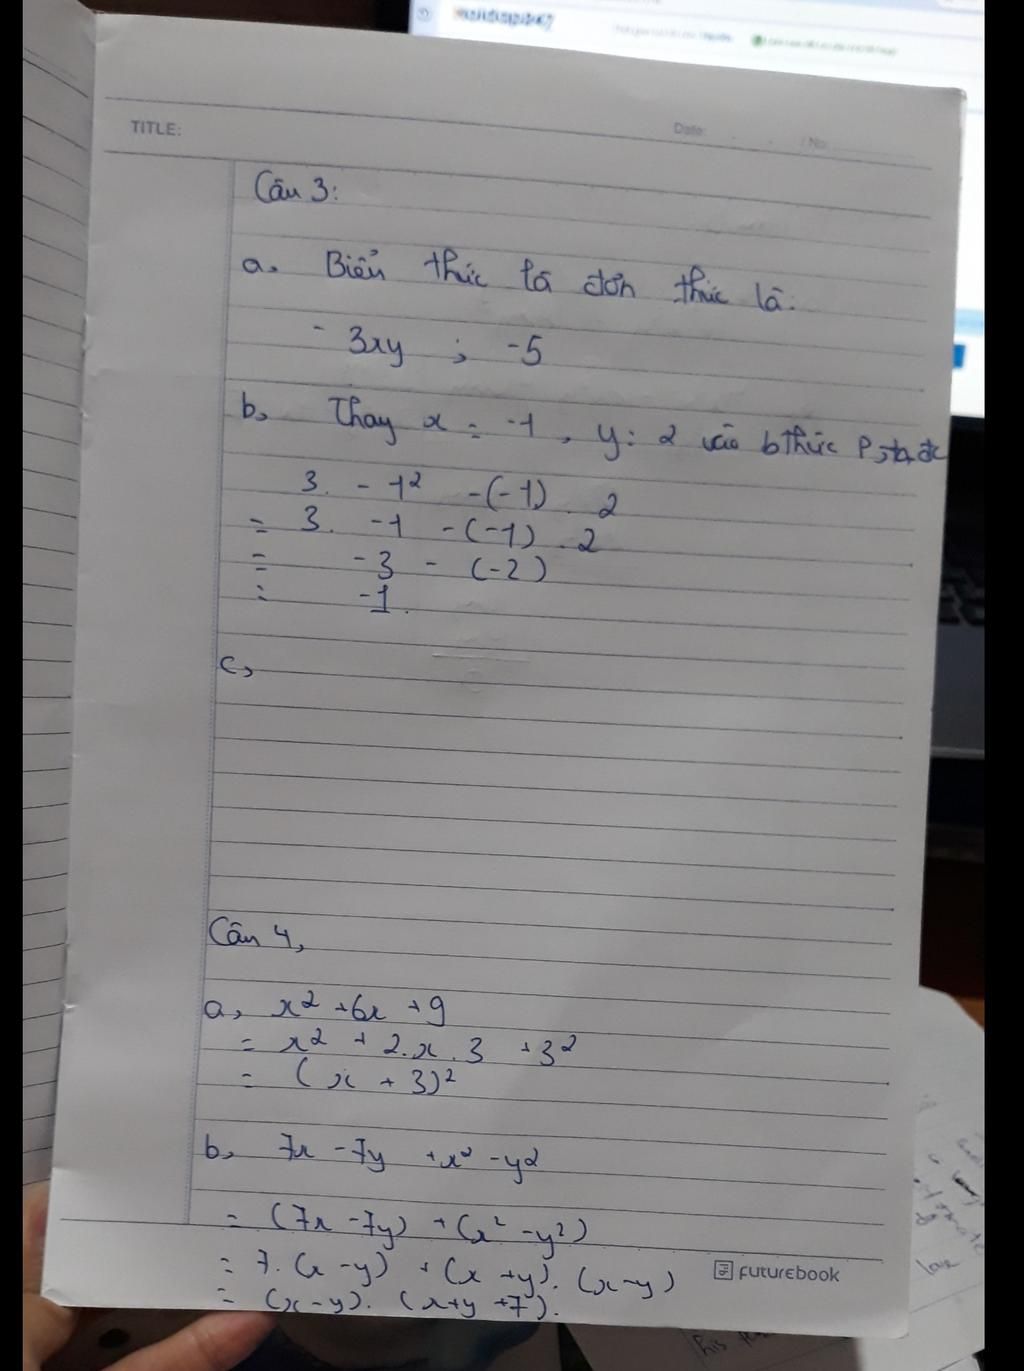 TITLE:
Date:
/ No:
Câu 3:
a, Biểu thức là đơn thức là:
- 3xy ; -5
b, Thay x = -1, y = 2 vào bthức P, ta đc
3. -1² -(-1) . 2
= 3. -1 -(-1) .2
= -3 - (-2)
= -1.
c,
Câu 4,
a, x² +6x +9
= x² + 2.x.3 +3²
= (x + 3)²
b, 7x -7y +x² -y²
= (7x -7y) + (x² -y²)
= 7.(x -y) + (x +y). (x-y)
FUTUREBOOK
= (x-y). (x+y +7).
love